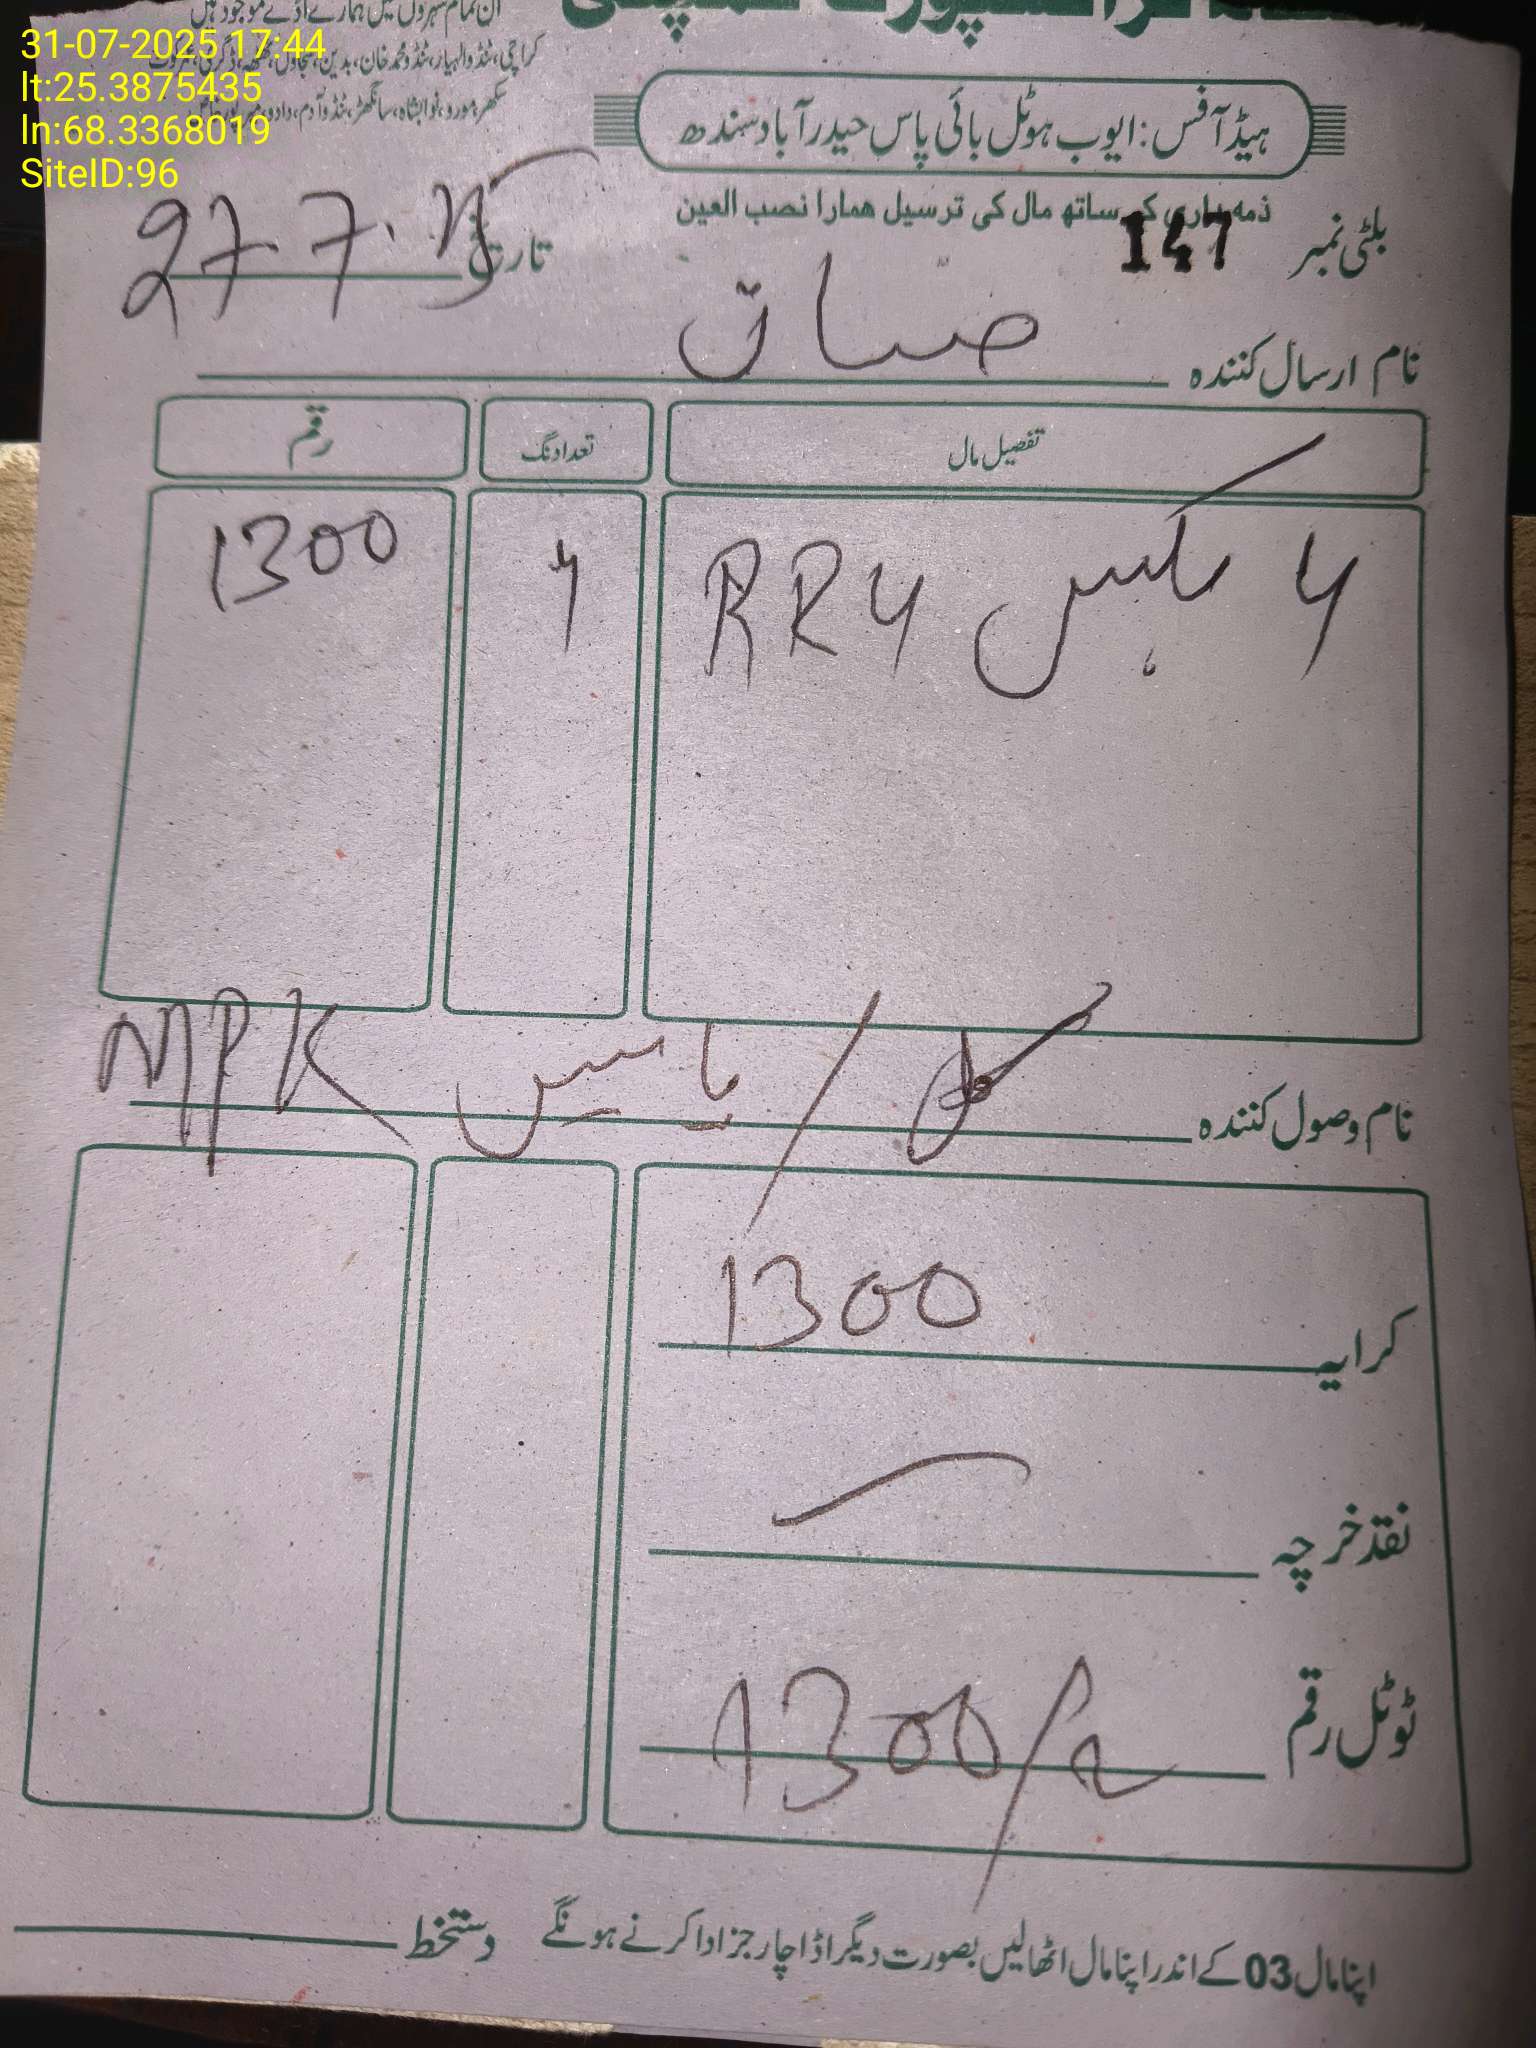 ٹرانسپورٹ کمپنی
ان تمام شہروں میں ہمارے اڈے موجود ہیں
31-07-2025 17:44
کراچی، ٹنڈوالہیار، ٹنڈو محمد خان، بدین، سجاول، ٹھٹھہ، ڈگری،
lt:25.3875435
سکھر، مورو، نوابشاہ، سانگھڑ، ٹنڈو آدم، دادو، میرپورخاص
ln:68.3368019
SiteID:96
ہیڈ آفس: ایوب ہوٹل بائی پاس حیدرآباد سندھ
ذمہ داری کے ساتھ مال کی ترسیل ہمارا نصب العین
بلٹی نمبر 147
تاریخ 27.7.25
نام ارسال کنندہ
تفصیل مال تعداد نگ رقم
4 بکس RR4 4 1300
نام وصول کنندہ / یاسین MPK
کرایہ 1300
نقد خرچہ
ٹوٹل رقم 1300/
اپنا مال 03 کے اندر اپنا مال اٹھالیں بصورت دیگر اڈا چارجز ادا کرنے ہونگے دستخط